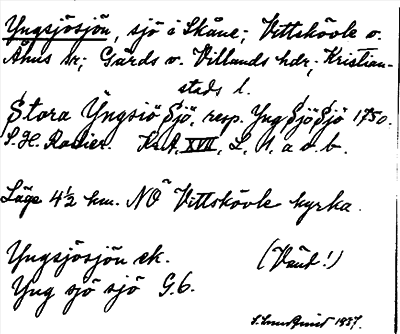 Yngsjösjön, sjö i Skåne; Vittskövle o.
Åhus sr; Gärds o. Villands hdr; Kristian-
stads l.
Stora Yngsiö Sjö, resp. Yng Sjö Sjö 1750.
S. H. Rafier. Kr. A. XVII, L, 1, a o. b.
Läge 4½ km. NÖ Vittskövle kyrka.
Yngsjösjön ek. (Vänd!)
Yng sjö sjö G.6.
1937.